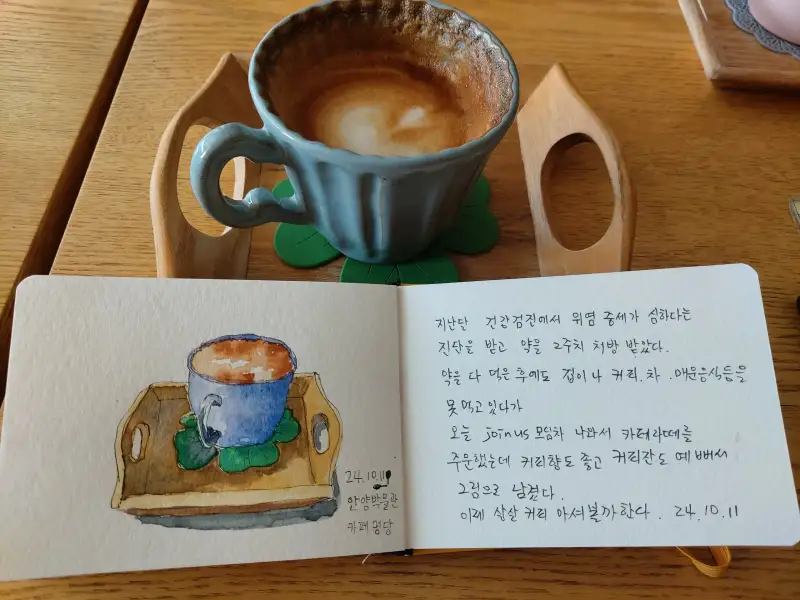 24.10.11
안양박물관
카페 명당
지난달 건강검진에서 위염 증세가 심하다는
진단을 받고 약을 2주치 처방 받았다.
약을 다 먹은 후에도 집이나 커피.차.매운음식등을
못먹고 있다가
오늘 join us 모임차 나와서 카페라떼를
주문했는데 커피향도 좋고 커피잔도 예뻐서
그림으로 남겼다.
이제 살살 커피 마셔볼까한다. 24.10.11